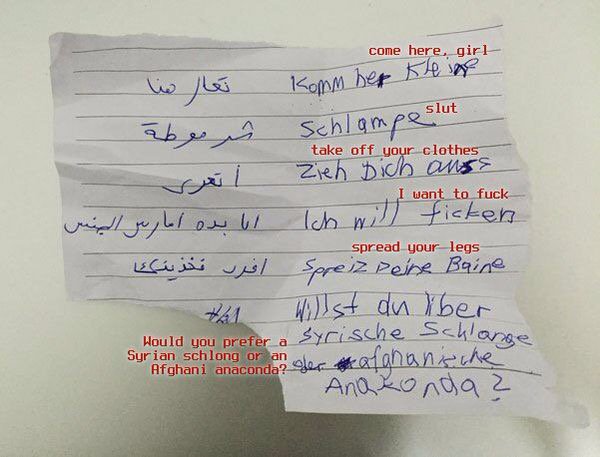 come here, girl
تعال هنا Komm her Kleine
slut
شرموطة Schlampe
take off your clothes
اتعرى Zieh Dich auss
I want to fuck
انا بده امارس الجنس Ich will ficken
spread your legs
افرد فخذينك Spreiz Deine Baine
Willst du liber
syrische Schlange
oder afghanische
Anakonda?
Would you prefer a
Syrian schlong or an
Afghani anaconda?